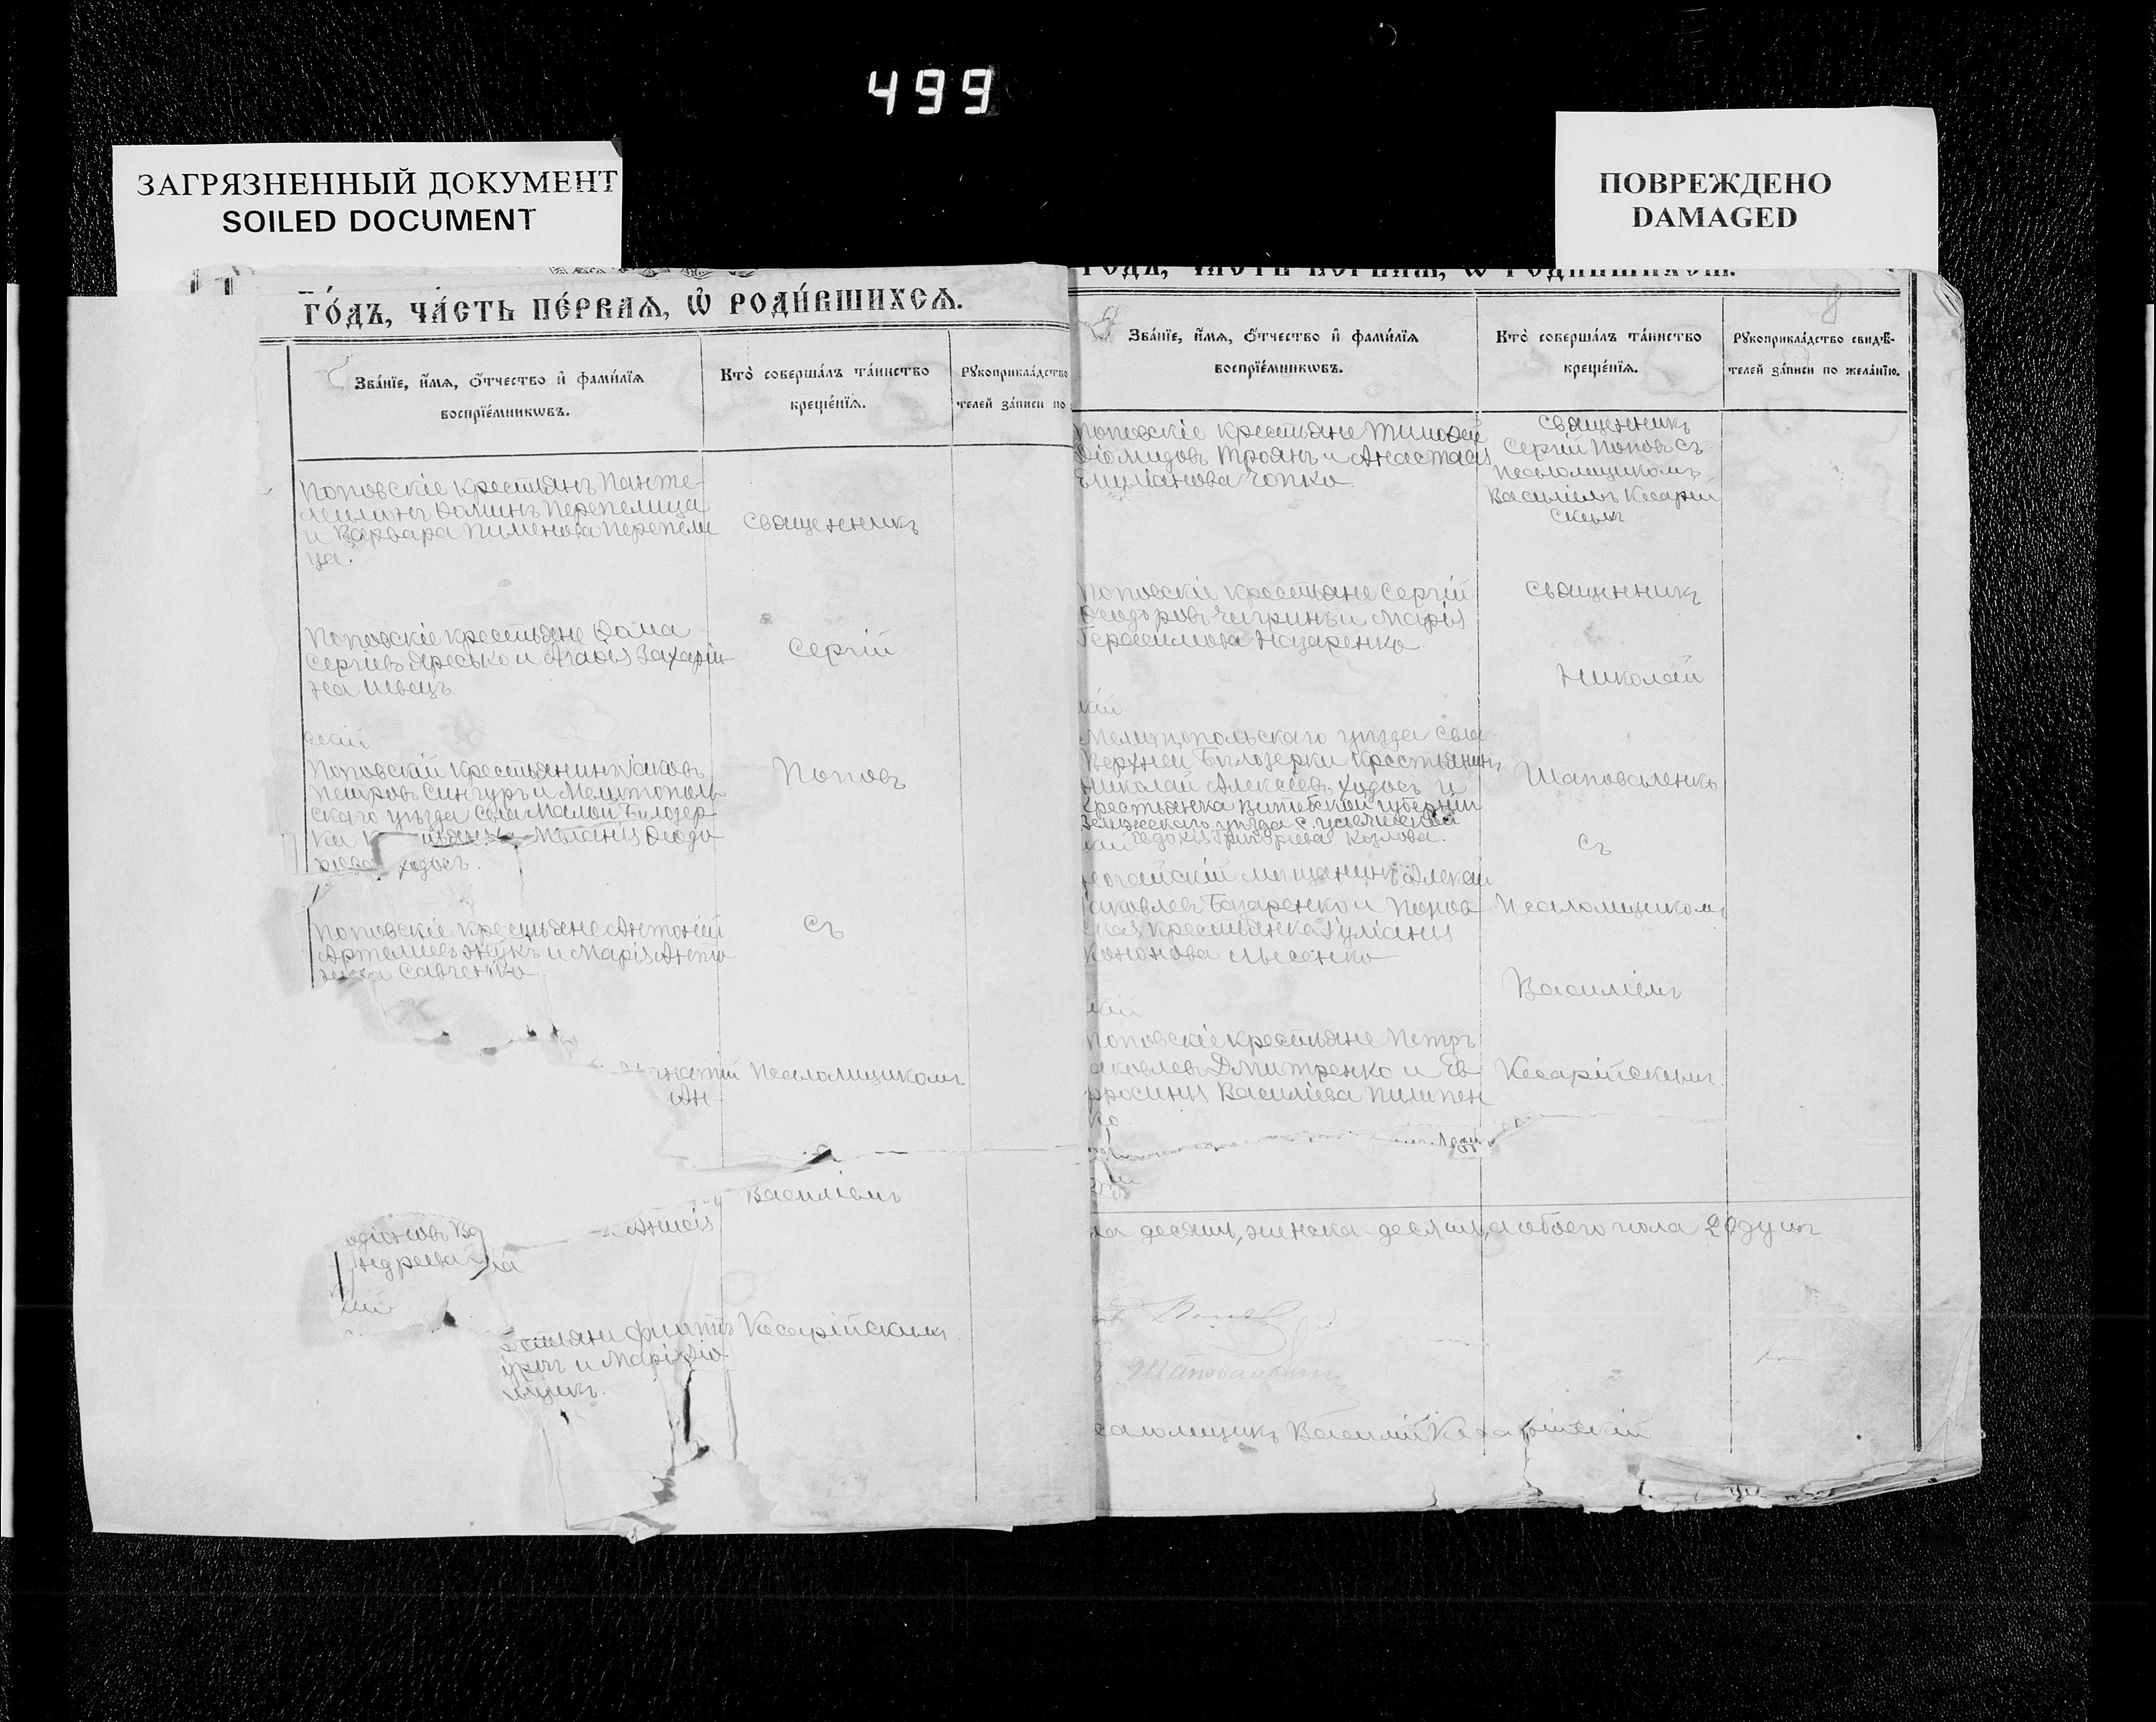 499
ЗАГРЯЗНЕННЫЙ ДОКУМЕНТ
SOILED DOCUMENT
ПОВРЕЖДЕНО
DAMAGED
ГО́ДЪ, ЧА́СТЬ ПЕ́РВАѦ, Ѽ РОДИ́ВШИХСѦ.
Зва́нїе, и҆́мѧ, ѻ҆́тчество и҆ фами́лїѧ
воспрїе́мникѡвъ.
Кто̀ соверша́лъ та́инство
креще́нїѧ.
Рꙋкоприкла́дство
телей за́писи по
Поповскіе крестьянъ Панте-
леимонъ Фоминъ Перепелица
и Варвара Пименова Перепели
ца.
Священникъ
Поповскіе крестьяне Фома
Сергіевъ Яресько и Агафія Захарiи
на Швецъ
Сергій
Поповскій крестьянинъ Іаковъ
Петровъ Сингуръ и Мелитополь
скаго уѣзда села Малой Бѣлозер
ки Меланія Феодо
Ходосъ.
Поповъ
Поповскіе крестьяне Антоній
Артемiевъ Жукъ и Марія Анто
Савченко
Съ
гнатій
Ан
Псаломщикомъ
Василіемъ
Анисія
Филиппъ
и Марія Діо
Кесарійскимъ
ГОДЪ, ЧАСТЬ ПЕРВАѦ, Ѽ РОДИВШИХСѦ.
8
Зва́нїе, и҆́мѧ, ѻ҆́тчество и҆ фами́лїѧ
воспрїе́мникѡвъ.
Кто̀ соверша́лъ та́инство
креще́нїѧ.
Рꙋкоприкла́дство свидѣ́-
телей за́писи по жела́нїю.
Поповскіе крестьяне Тимофей
Діомидовъ Троянъ и Анастасія
Емиліанова Чопко
Священникъ
Сергій Поповъ съ
Псаломщикомъ
Василіемъ Кесарій
скимъ
Поповскіе крестьяне Сергій
Феодоровъ Чигринъ и Марія
Герасимова Назаренко
Священникъ
Николай
Мелитопольскаго уѣзда села
Верхней Бѣлозерки крестьянинъ
Николай Алексѣевъ Ходосъ и
крестьянка Витебской губерніи
уѣзда с.
Евдокія Григорьева Козлова.
Шаповаленко
Съ
Ногайскій мѣщанинъ Алексѣй
Іаковлевъ Базаренко и Попов
ская крестьянка Іуліанія
Кононова Лысенко
Псаломщикомъ
Василіемъ
Поповскіе крестьяне Петръ
Іаковлевъ Дмитренко и Ев
фросинія Василіева Пилипен
ко
Кесарійскимъ
десять, женска десять, а обоего пола 20 душъ
Псаломщикъ Василій Кесарійскій